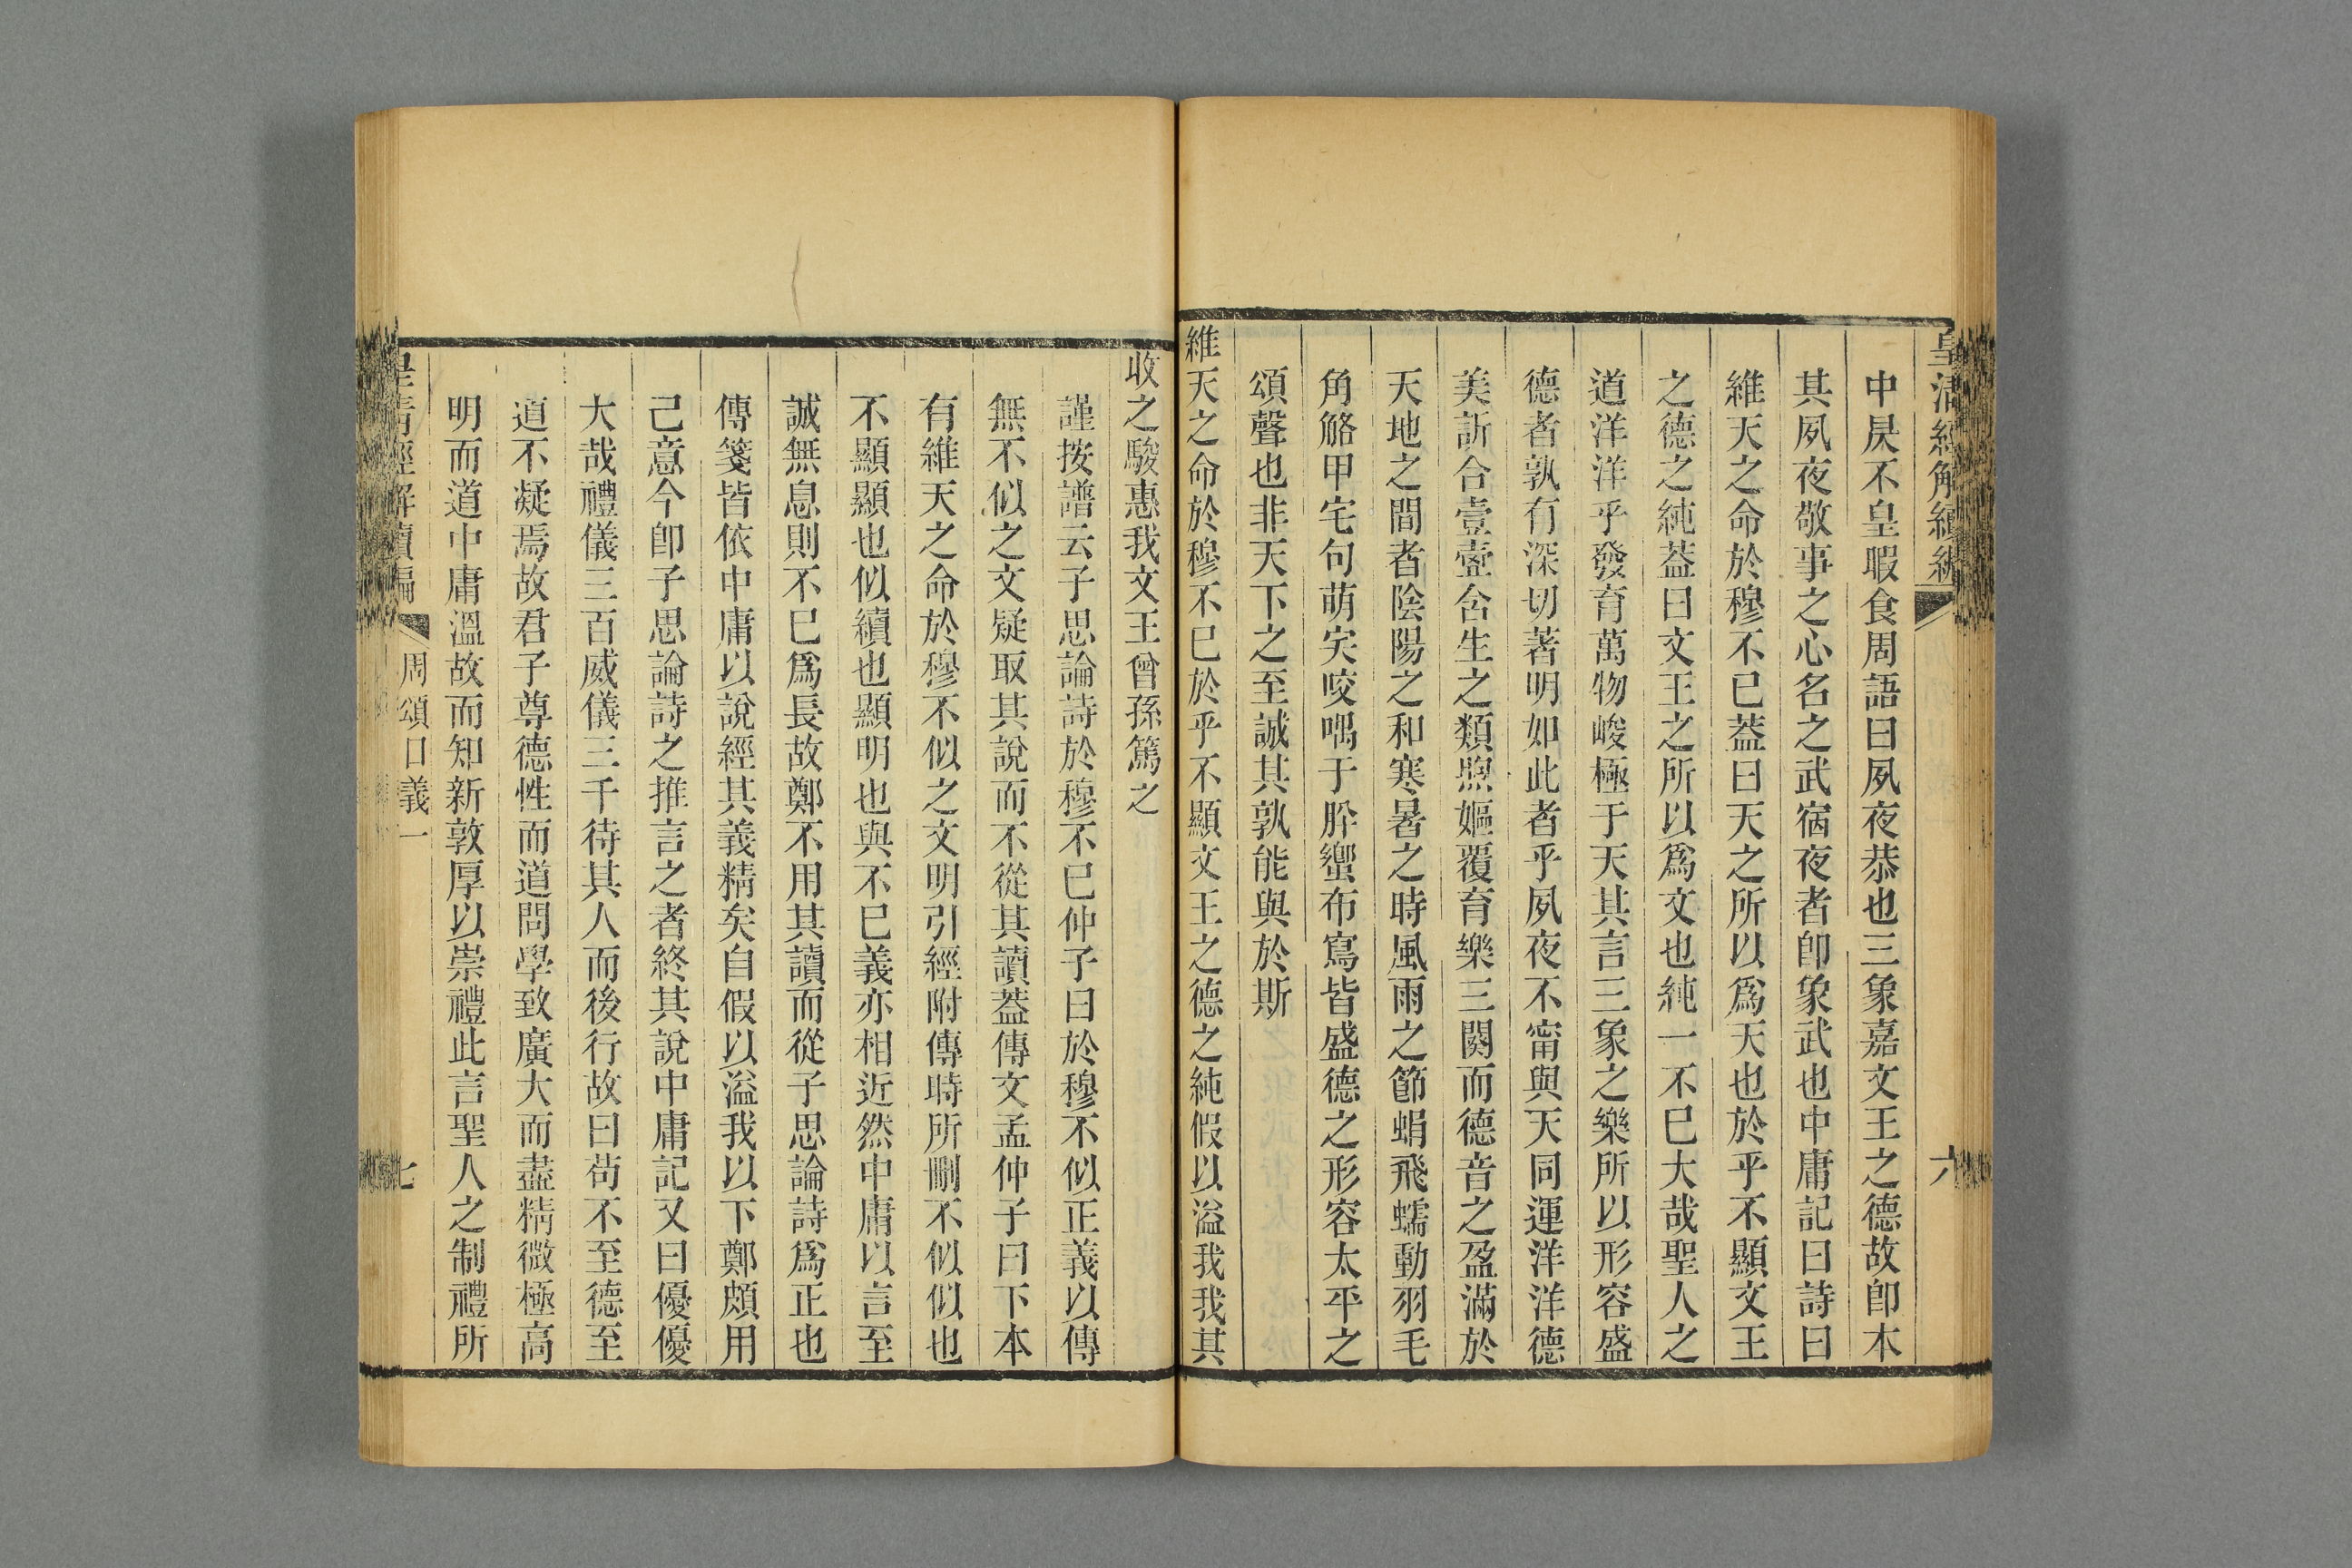 皇清經解續編
六
中昃不皇暇食周語曰夙夜恭也三象嘉文王之德故卽本
其夙夜敬事之心名之武宿夜者卽象武也中庸記曰詩曰
維天之命於穆不已葢曰天之所以爲天也於乎不顯文王
之德之純葢曰文王之所以爲文也純一不已大哉聖人之
道洋洋乎發育萬物峻極于天其言三象之樂所以形容盛
德者孰有深切著明如此者乎夙夜不甯與天同運洋洋德
美訢合壹壼含生之類煦嫗覆育樂三闋而德音之盈滿於
天地之間者陰陽之和寒暑之時風雨之節蜎飛蠕動羽毛
角觡甲宅句萌宎咬喁于肸蠁布寫皆盛德之形容太平之
頌聲也非天下之至誠其孰能與於斯
維天之命於穆不已於乎不顯文王之德之純假以溢我我其
收之駿惠我文王曾孫篤之
謹按譜云子思論詩於穆不已仲子曰於穆不似正義以傳
無不似之文疑取其說而不從其讀葢傳文孟仲子曰下本
有維天之命於穆不似之文明引經附傳時所刪不似似也
不顯顯也似續也顯明也與不已義亦相近然中庸以言至
誠無息則不已爲長故鄭不用其讀而從子思論詩爲正也
傳箋皆依中庸以說經其義精矣自假以溢我以下鄭頗用
己意今卽子思論詩之推言之者終其說中庸記又曰優優
大哉禮儀三百威儀三千待其人而後行故曰苟不至德至
道不凝焉故君子尊德性而道問學致廣大而盡精微極高
明而道中庸溫故而知新敦厚以崇禮此言聖人之制禮所
皇清經解續編
周頌口義一
七